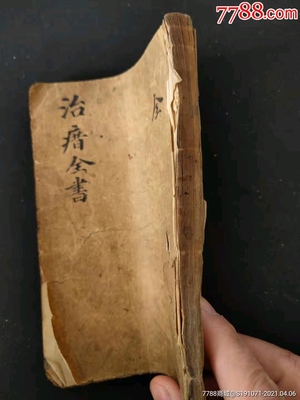 7788.com
治瘄全書
7788商城@S191071-2021.04.06